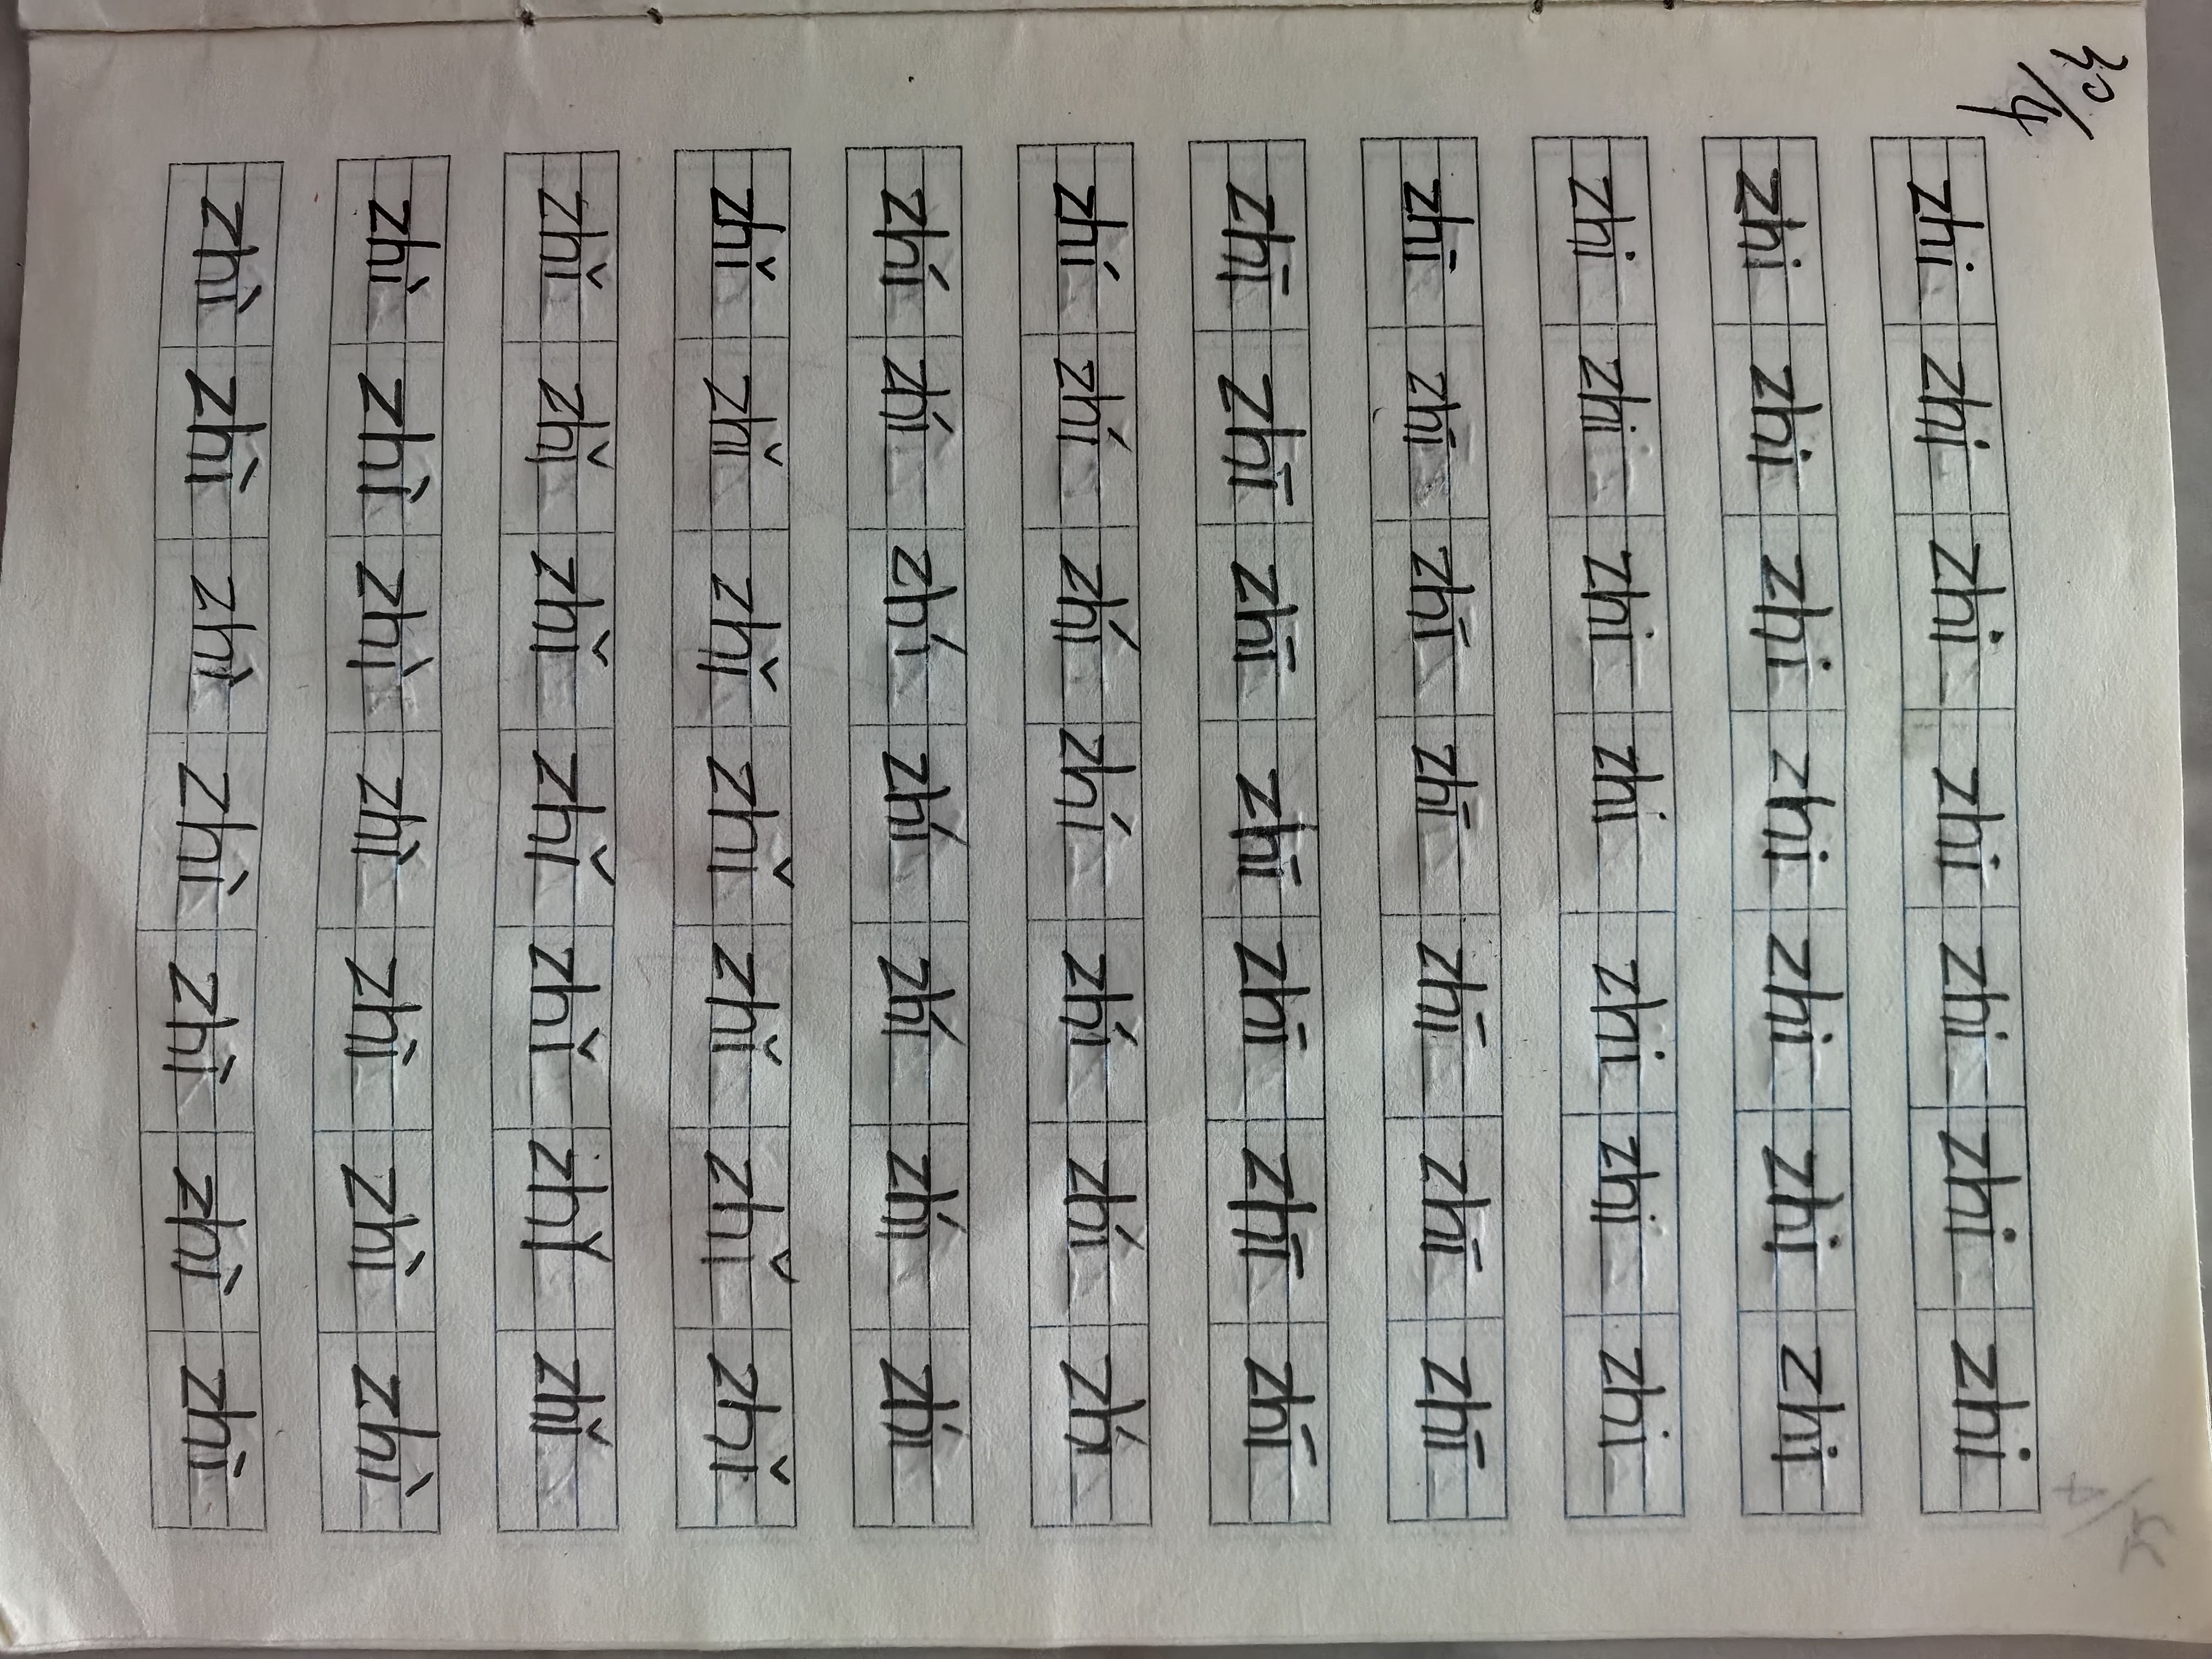 30/4
zhi zhi zhi zhi zhi zhi zhi
zhi zhi zhi zhi zhi zhi zhi
zhi zhi zhi zhi zhi zhi zhi
zhī zhī zhī zhī zhī zhī zhī
zhī zhī zhī zhī zhī zhī zhī
zhí zhí zhí zhí zhí zhí zhí
zhí zhí zhí zhí zhí zhí zhí
zhǐ zhǐ zhǐ zhǐ zhǐ zhǐ zhǐ
zhǐ zhǐ zhǐ zhǐ zhǐ zhǐ zhǐ
zhì zhì zhì zhì zhì zhì zhì
zhì zhì zhì zhì zhì zhì zhì